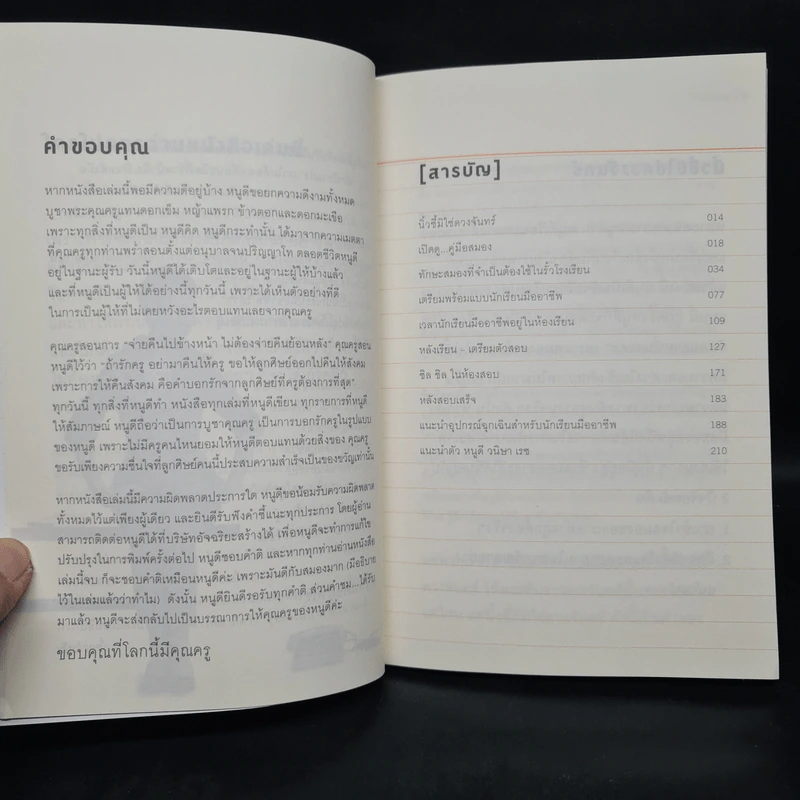 คำขอบคุณ
หากหนังสือเล่มนี้พอมีความดีอยู่บ้าง หนูดีขอยกความดีงามทั้งหมด
บูชาพระคุณครูแทนดอกเข็ม หญ้าแพรก ข้าวตอกและดอกมะเขือ
เพราะทุกสิ่งที่หนูดีเป็น หนูดีคิด หนูดีกระทำนั้น ได้มาจากความเมตตา
ที่คุณครูทุกท่านพร่ำสอนตั้งแต่อนุบาลจนปริญญาโท ตลอดชีวิตหนูดี
อยู่ในฐานะผู้รับ วันนี้หนูดีได้เติบโตและอยู่ในฐานะผู้ให้บ้างแล้ว
และที่หนูดีเป็นผู้ให้ได้อย่างนี้ทุกวันนี้ เพราะได้เห็นตัวอย่างที่ดี
ในการเป็นผู้ให้ที่ไม่เคยหวังอะไรตอบแทนเลยจากคุณครู
คุณครูสอนการ “จ่ายคืนไปข้างหน้า ไม่ต้องจ่ายคืนย้อนหลัง” คุณครูสอน
หนูดีไว้ว่า “ถ้ารักครู อย่ามาคืนให้ครู ขอให้ลูกศิษย์ออกไปคืนให้สังคม
เพราะการให้คืนสังคม คือคำบอกรักจากลูกศิษย์ที่ครูต้องการที่สุด”
ทุกวันนี้ ทุกสิ่งที่หนูดีทำ หนังสือทุกเล่มที่หนูดีเขียน ทุกรายการที่หนูดี
ให้สัมภาษณ์ หนูดีถือว่าเป็นการบูชาคุณครู เป็นการบอกรักครูในรูปแบบ
ของหนูดี เพราะไม่มีครูคนไหนยอมให้หนูดีตอบแทนด้วยสิ่งของ คุณครู
ขอรับเพียงความชื่นใจที่ลูกศิษย์คนนี้ประสบความสำเร็จเป็นของขวัญเท่านั้น
หากหนังสือเล่มนี้มีความผิดพลาดประการใด หนูดีขอน้อมรับความผิดพลาด
ทั้งหมดไว้แต่เพียงผู้เดียว และยินดีรับฟังคำชี้แนะทุกประการ โดยผู้อ่าน
สามารถติดต่อหนูดีได้ที่บริษัทอัจฉริยะสร้างได้ เพื่อหนูดีจะทำการแก้ไข
ปรับปรุงในการพิมพ์ครั้งต่อไป หนูดีชอบคำติ และหากทุกท่านอ่านหนังสือ
เล่มนี้จบ ก็จะชอบคำติเหมือนหนูดีค่ะ เพราะมันดีกับสมองมาก (มีอธิบาย
ไว้ในเล่มแล้วว่าทำไม) ดังนั้น หนูดียินดีรอรับทุกคำติ ส่วนคำชม...ได้รับ
มาแล้ว หนูดีจะส่งกลับไปเป็นบรรณาการให้คุณครูของหนูดีค่ะ
ขอบคุณที่โลกนี้มีคุณครู
[สารบัญ]
นิ้วชี้มิใช่ดวงจันทร์ 014
เปิดดู...คู่มือสมอง 018
ทักษะสมองที่จำเป็นต้องใช้ในรั้วโรงเรียน 034
เตรียมพร้อมแบบนักเรียนมืออาชีพ 077
เวลานักเรียนมืออาชีพอยู่ในห้องเรียน 109
หลังเรียน – เตรียมตัวสอบ 127
ชิล ชิล ในห้องสอบ 171
หลังสอบเสร็จ 183
แนะนำอุปกรณ์ฉุกเฉินสำหรับนักเรียนมืออาชีพ 188
แนะนำตัว หนูดี วนิษา เรซ 210